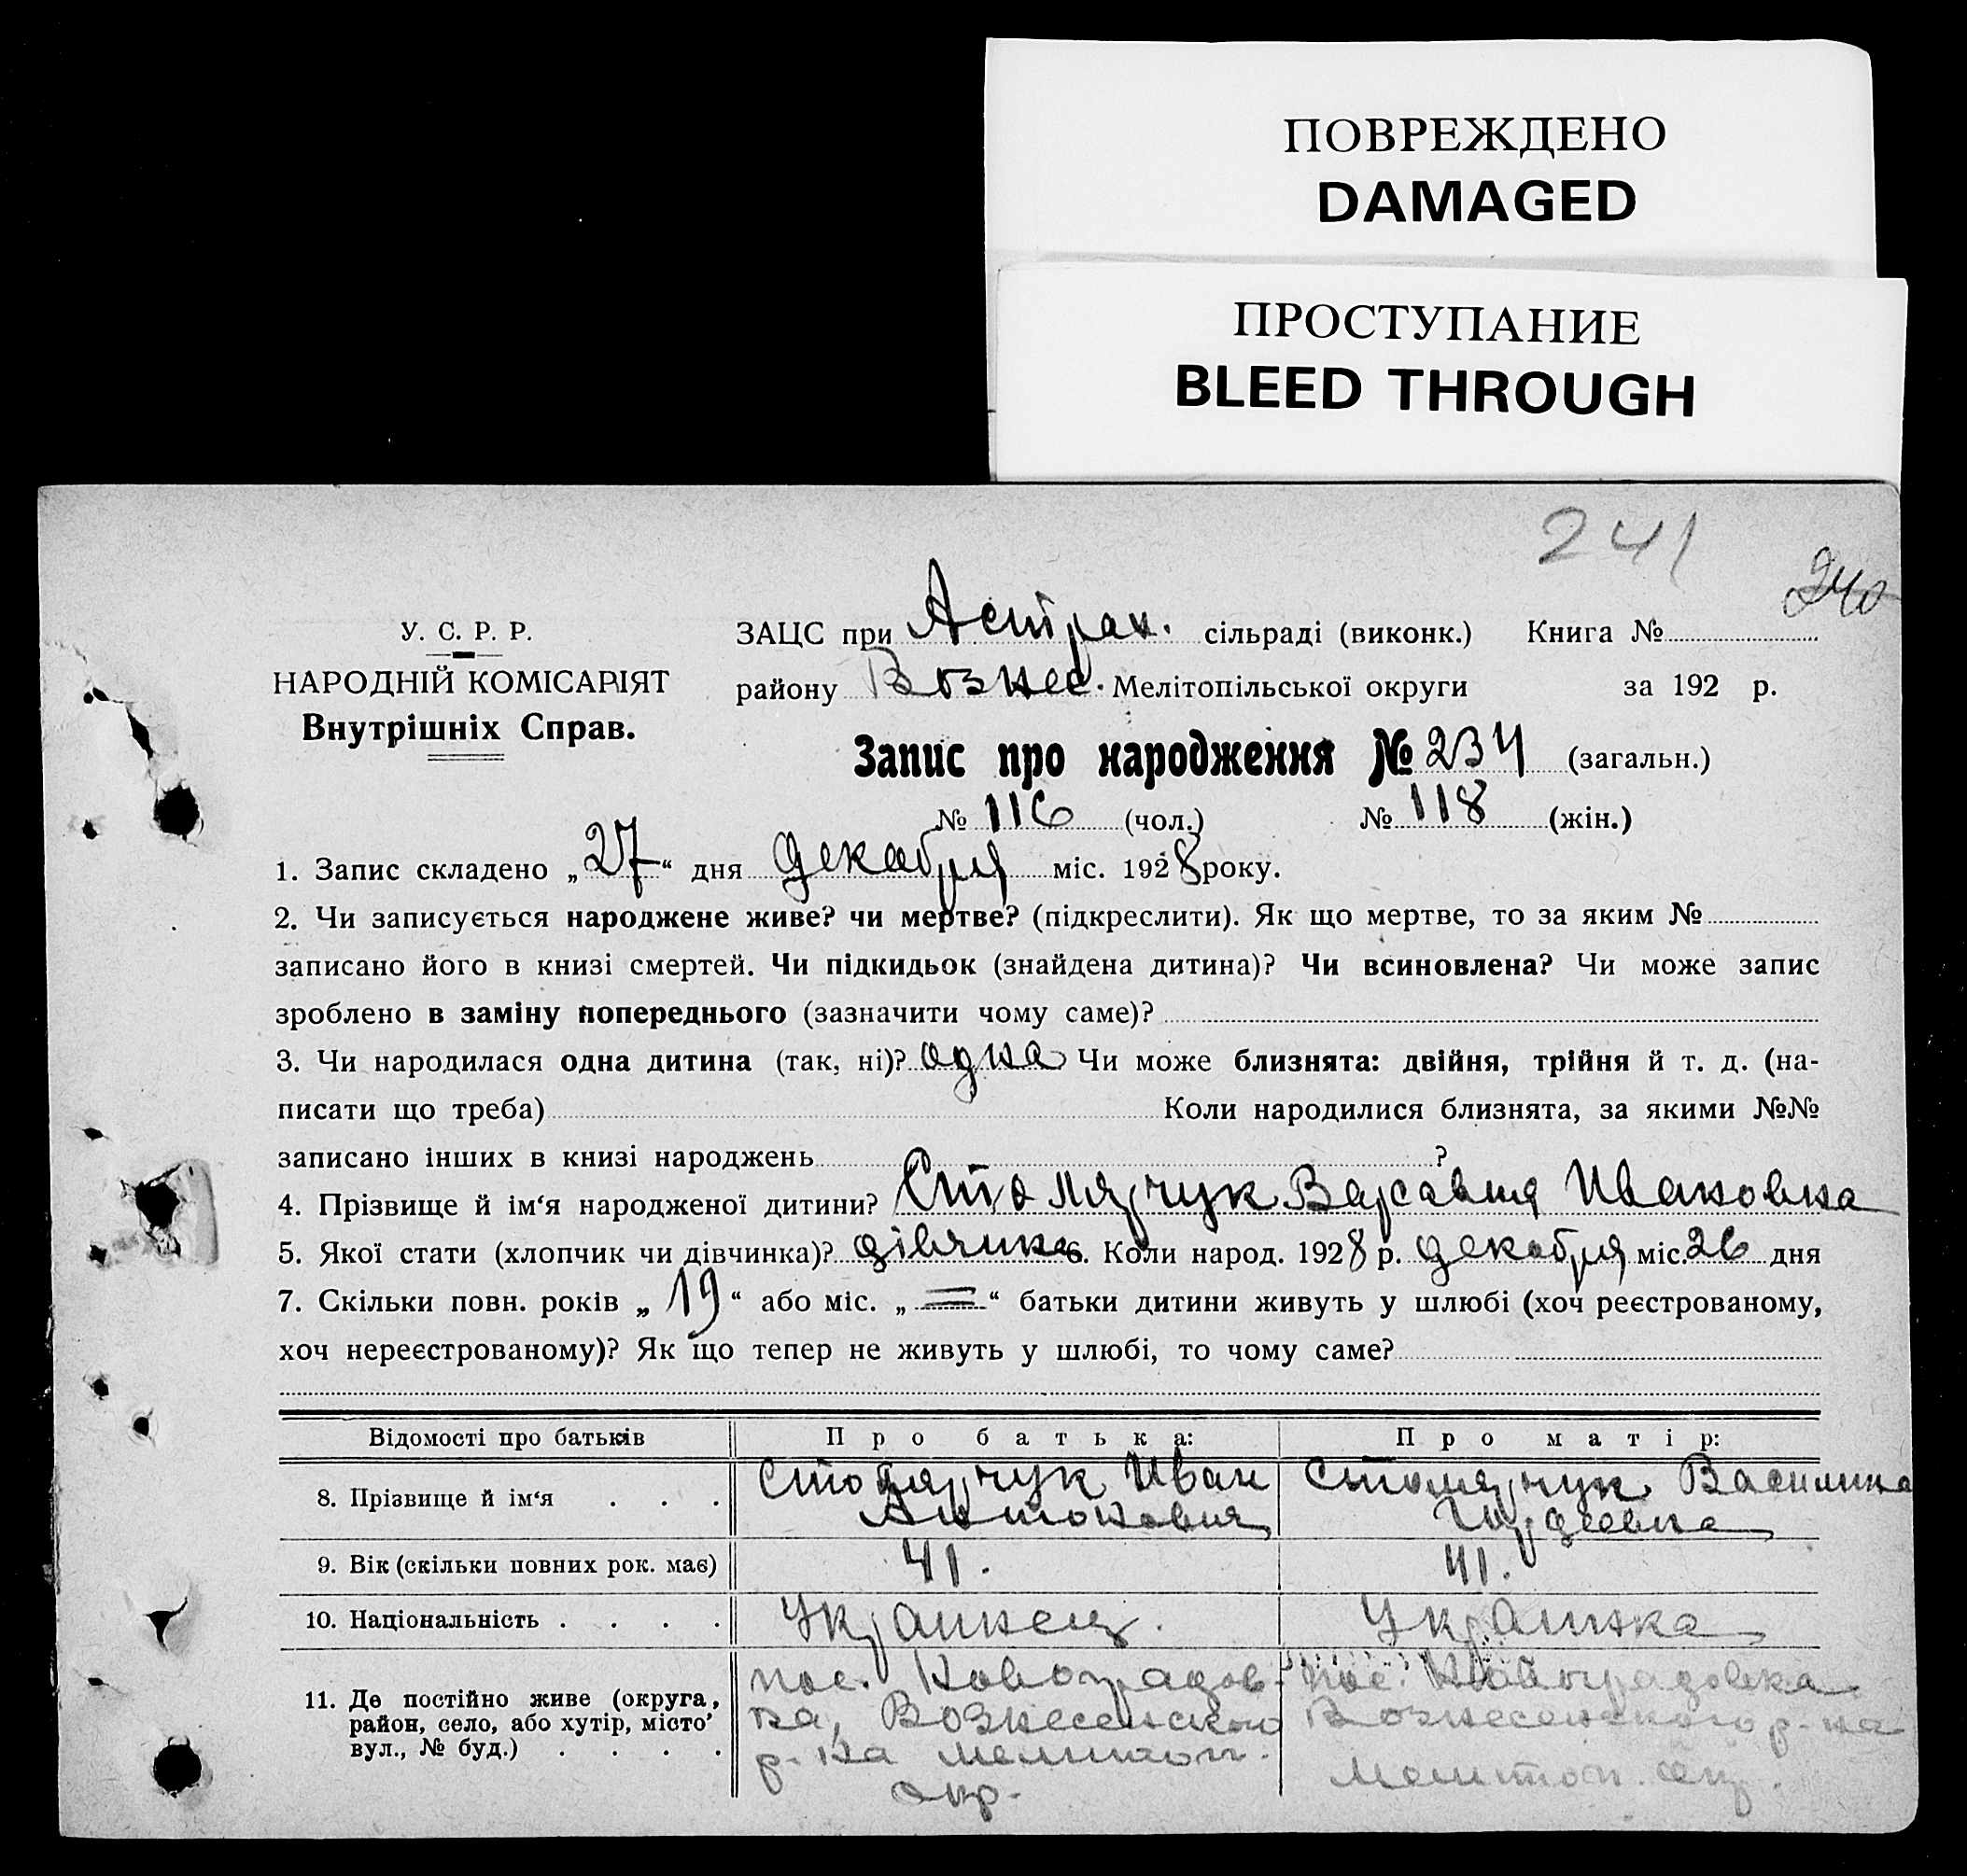 ПОВРЕЖДЕНО
DAMAGED
ПРОСТУПАНИЕ
BLEED THROUGH
241
240
У. С. Р. Р.
НАРОДНІЙ КОМІСАРІЯТ
Внутрішніх Справ.
ЗАЦС при Астрах. сільраді (виконк.) Книга №
району Вознес. Мелітопільської округи за 192 р.
Запис про народження № 234 (загальн.)
№ 116 (чол.) № 118 (жін.)
1. Запис складено „27“ дня декабря міс. 1928 року.
2. Чи записується народжене живе? чи мертве? (підкреслити). Як що мертве, то за яким №
записано його в книзі смертей. Чи підкидьок (знайдена дитина)? Чи всиновлена? Чи може запис
зроблено в заміну попереднього (зазначити чому саме)?
3. Чи народилася одна дитина (так, ні)? одна Чи може близнята: двійня, трійня й т. д. (на-
писати що треба) Коли народилися близнята, за якими №№
записано інших в книзі народжень ?
4. Прізвище й ім‘я народженої дитини? Столярчук Ивановна
5. Якої стати (хлопчик чи дівчинка)? дівчинка 6. Коли народ. 1928 р. декабря міс. 26 дня
7. Скільки повн. років „19“ або міс. „=“ батьки дитини живуть у шлюбі (хоч реєстрованому,
хоч нереєстрованому)? Як що тепер не живуть у шлюбі, то чому саме?
Відомості про батьків Про батька: Про матір:
8. Прізвище й ім‘я . . . Столярчук Иван Антонович Столярчук Василина Гордеевна
9. Вік (скільки повних рок. має) 41. 41.
10. Національність . . . . Украинец. Украинка
11. Де постійно живе (округа, район, село, або хутір, місто вул., № буд.) . . . . пос. Новоградов-
ка, Вознесенского
р-на Мелитоп.
окр.
пос. Новоградовка
Вознесенского р-на
Мелитоп. окр.